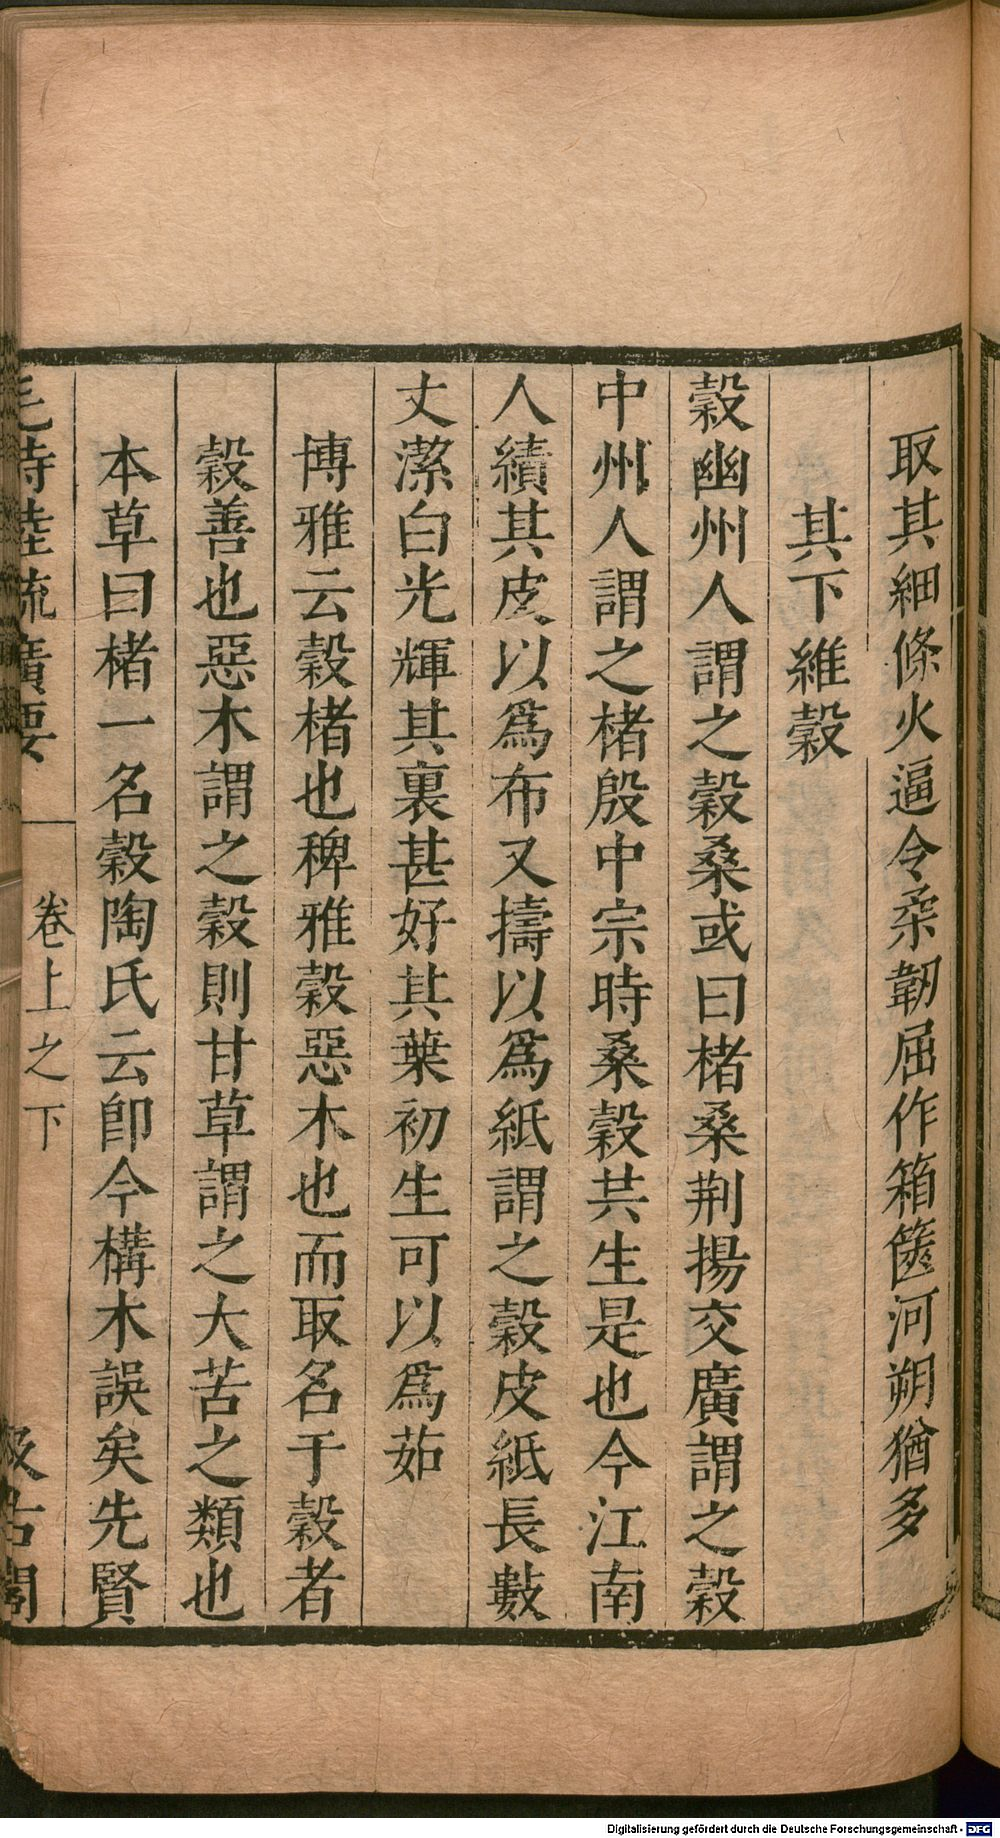 取其細條火逼令柔韌屈作箱篋河朔猶多
其下維榖
榖幽州人謂之榖桑或曰楮桑荆揚交廣謂之榖
中州人謂之楮殷中宗時桑榖共生是也今江南
人績其皮以爲布又擣以爲紙謂之榖皮紙長數
丈潔白光輝其裏甚好其葉初生可以爲茹
博雅云榖楮也稗雅榖惡木也而取名于榖者
榖善也惡木謂之榖則甘草謂之大苦之類也
本草曰楮一名榖陶氏云卽今構木誤矣先賢
毛詩陸疏廣要
卷上之下
汲古閣
Digitalisierung gefördert durch die Deutsche Forschungsgemeinschaft - DFG